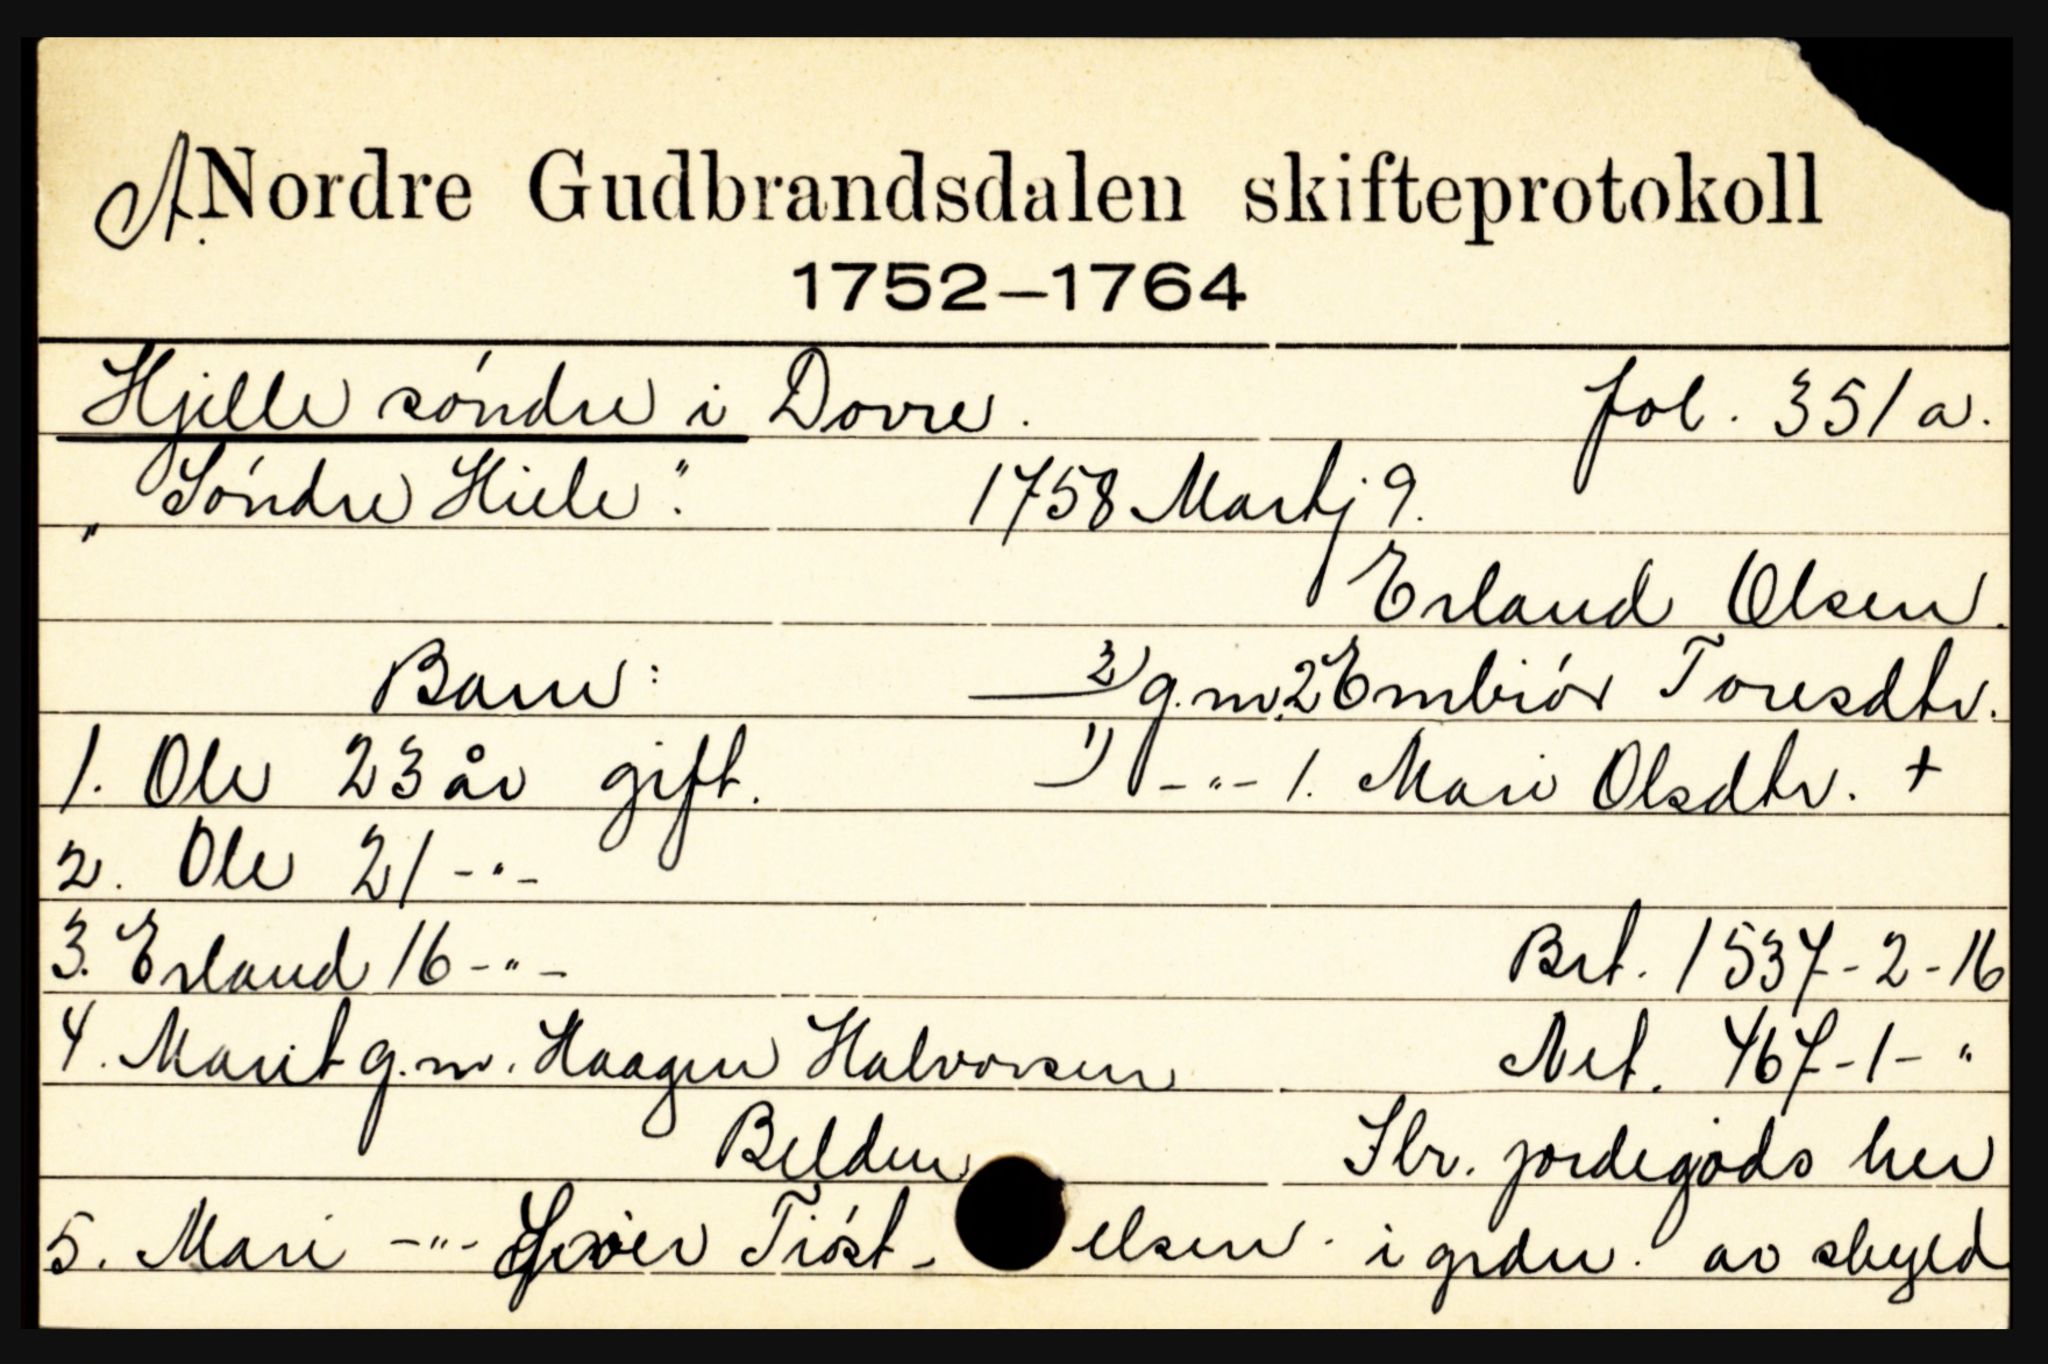 A. Nordre Gudbrandsdalen skifteprotokoll
1752–1764
Hjelle søndre i Dovre. fol. 351a.
„Søndre Hiele". 1758 Martj 9.
Erland Olsen.
Barn: 2) g.m. 2 Embiór Toresdtr.
1. Ole 23 år gift. 1) -"- 1. Mari Olsdtr. +
2. Ole 21 -"-
3. Erland 16 -"- Brt. 1537-2-16
4. Marit g.m. Haagen Halvorsen Net. 467-1-"
Belden Slr. jordegods her
5. Mari -"- Siver Tióst-elsen. i grdn. av skyld